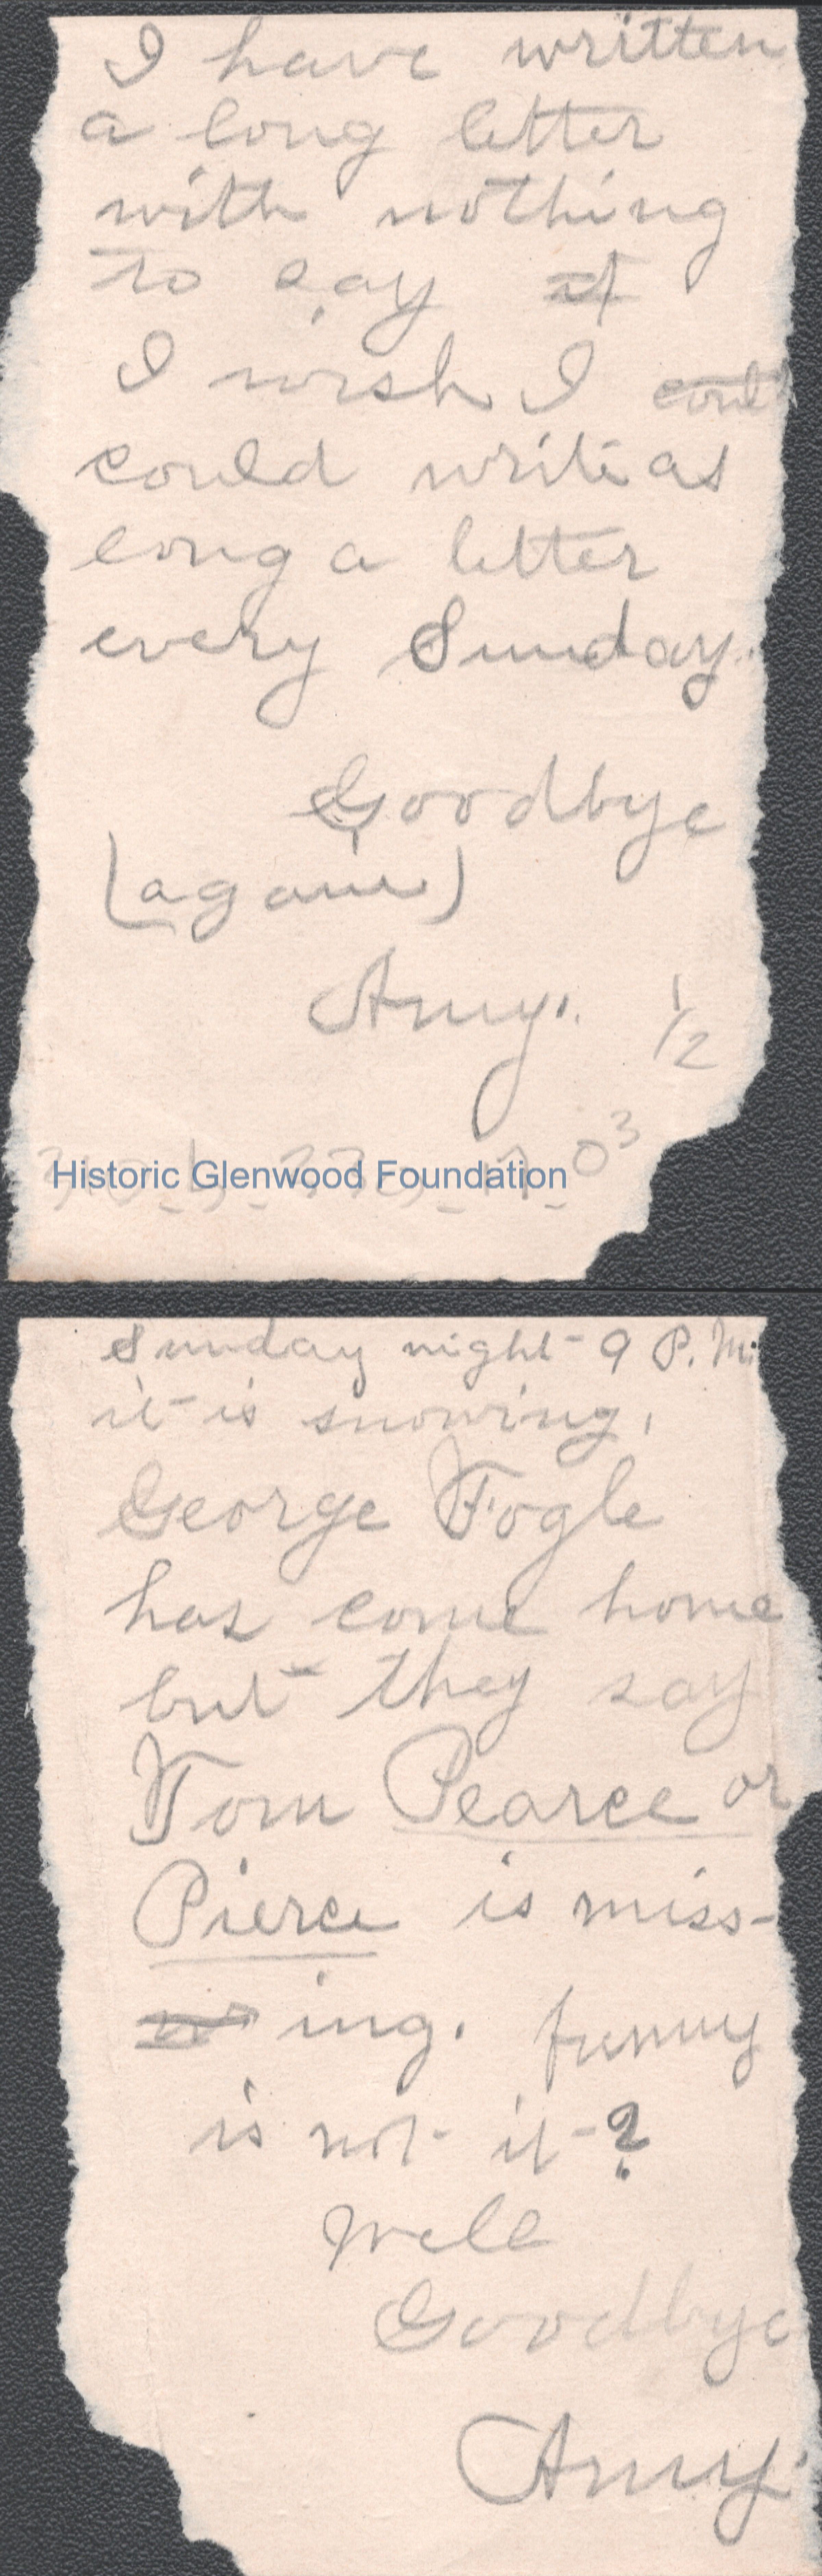 I have written
a long letter
with nothing
to say it
I wish I coul
could write as
long a letter
every Sunday.
Goodbye
(again)
Amy.
1/2
Historic Glenwood Foundation
Sunday night - 9 P.M.
it is snowing.
George Fogle
has come home
but they say
Tom Pearce or
Pierce is miss-
ing. funny
is not it-?
Well
Goodbye
Amy.